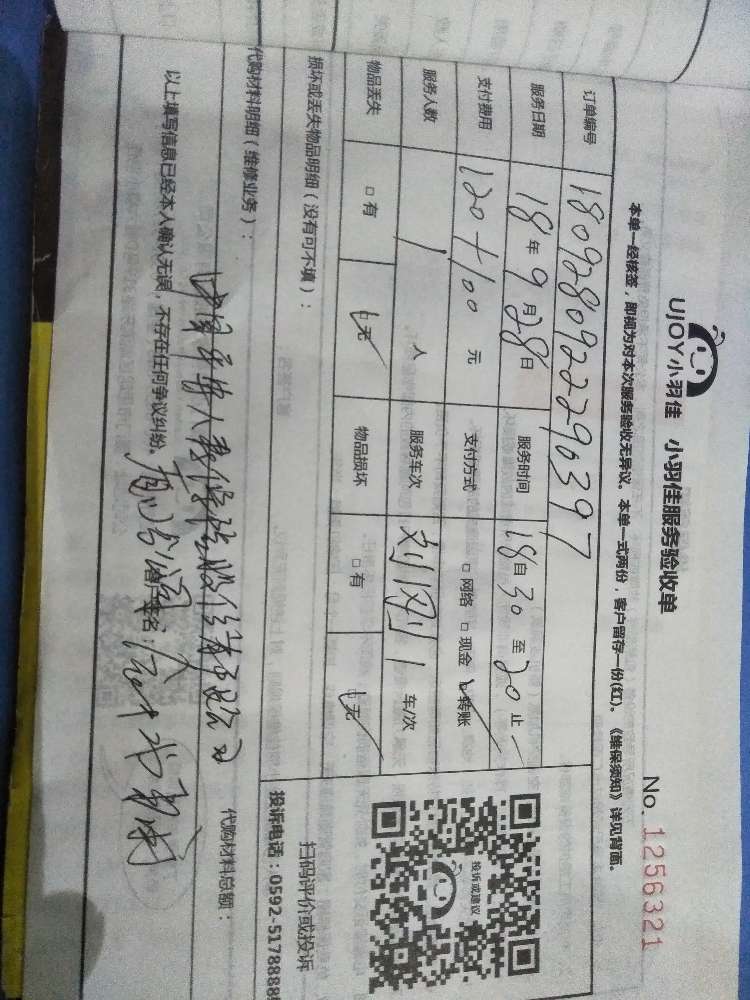 UJOY小羽佳 小羽佳服务验收单
No. 1256321
本单一经核签，即视为对本次服务验收无异议。本单一式两份，客户留存一份(红)。《维保须知》详见背面。
订单编号 1809280922290397
服务日期 18年9月28日 服务时间 18自30至20止
支付费用 120+100 元 支付方式 □网络 □现金 ☑转账
服务人数 1 人 服务车次 1 车/次
物品丢失 □有 ☑无 物品损坏 □有 ☑无
损坏或丢失物品明细（没有可不填）：
投诉或建议
扫码评价或投诉
投诉电话：0592-5178888
代购材料明细（维修业务）： 代购材料总额：
中国平安人寿保险股份有限公司
以上填写信息已经本人确认无误，不存在任何争议纠纷。 客户签名：